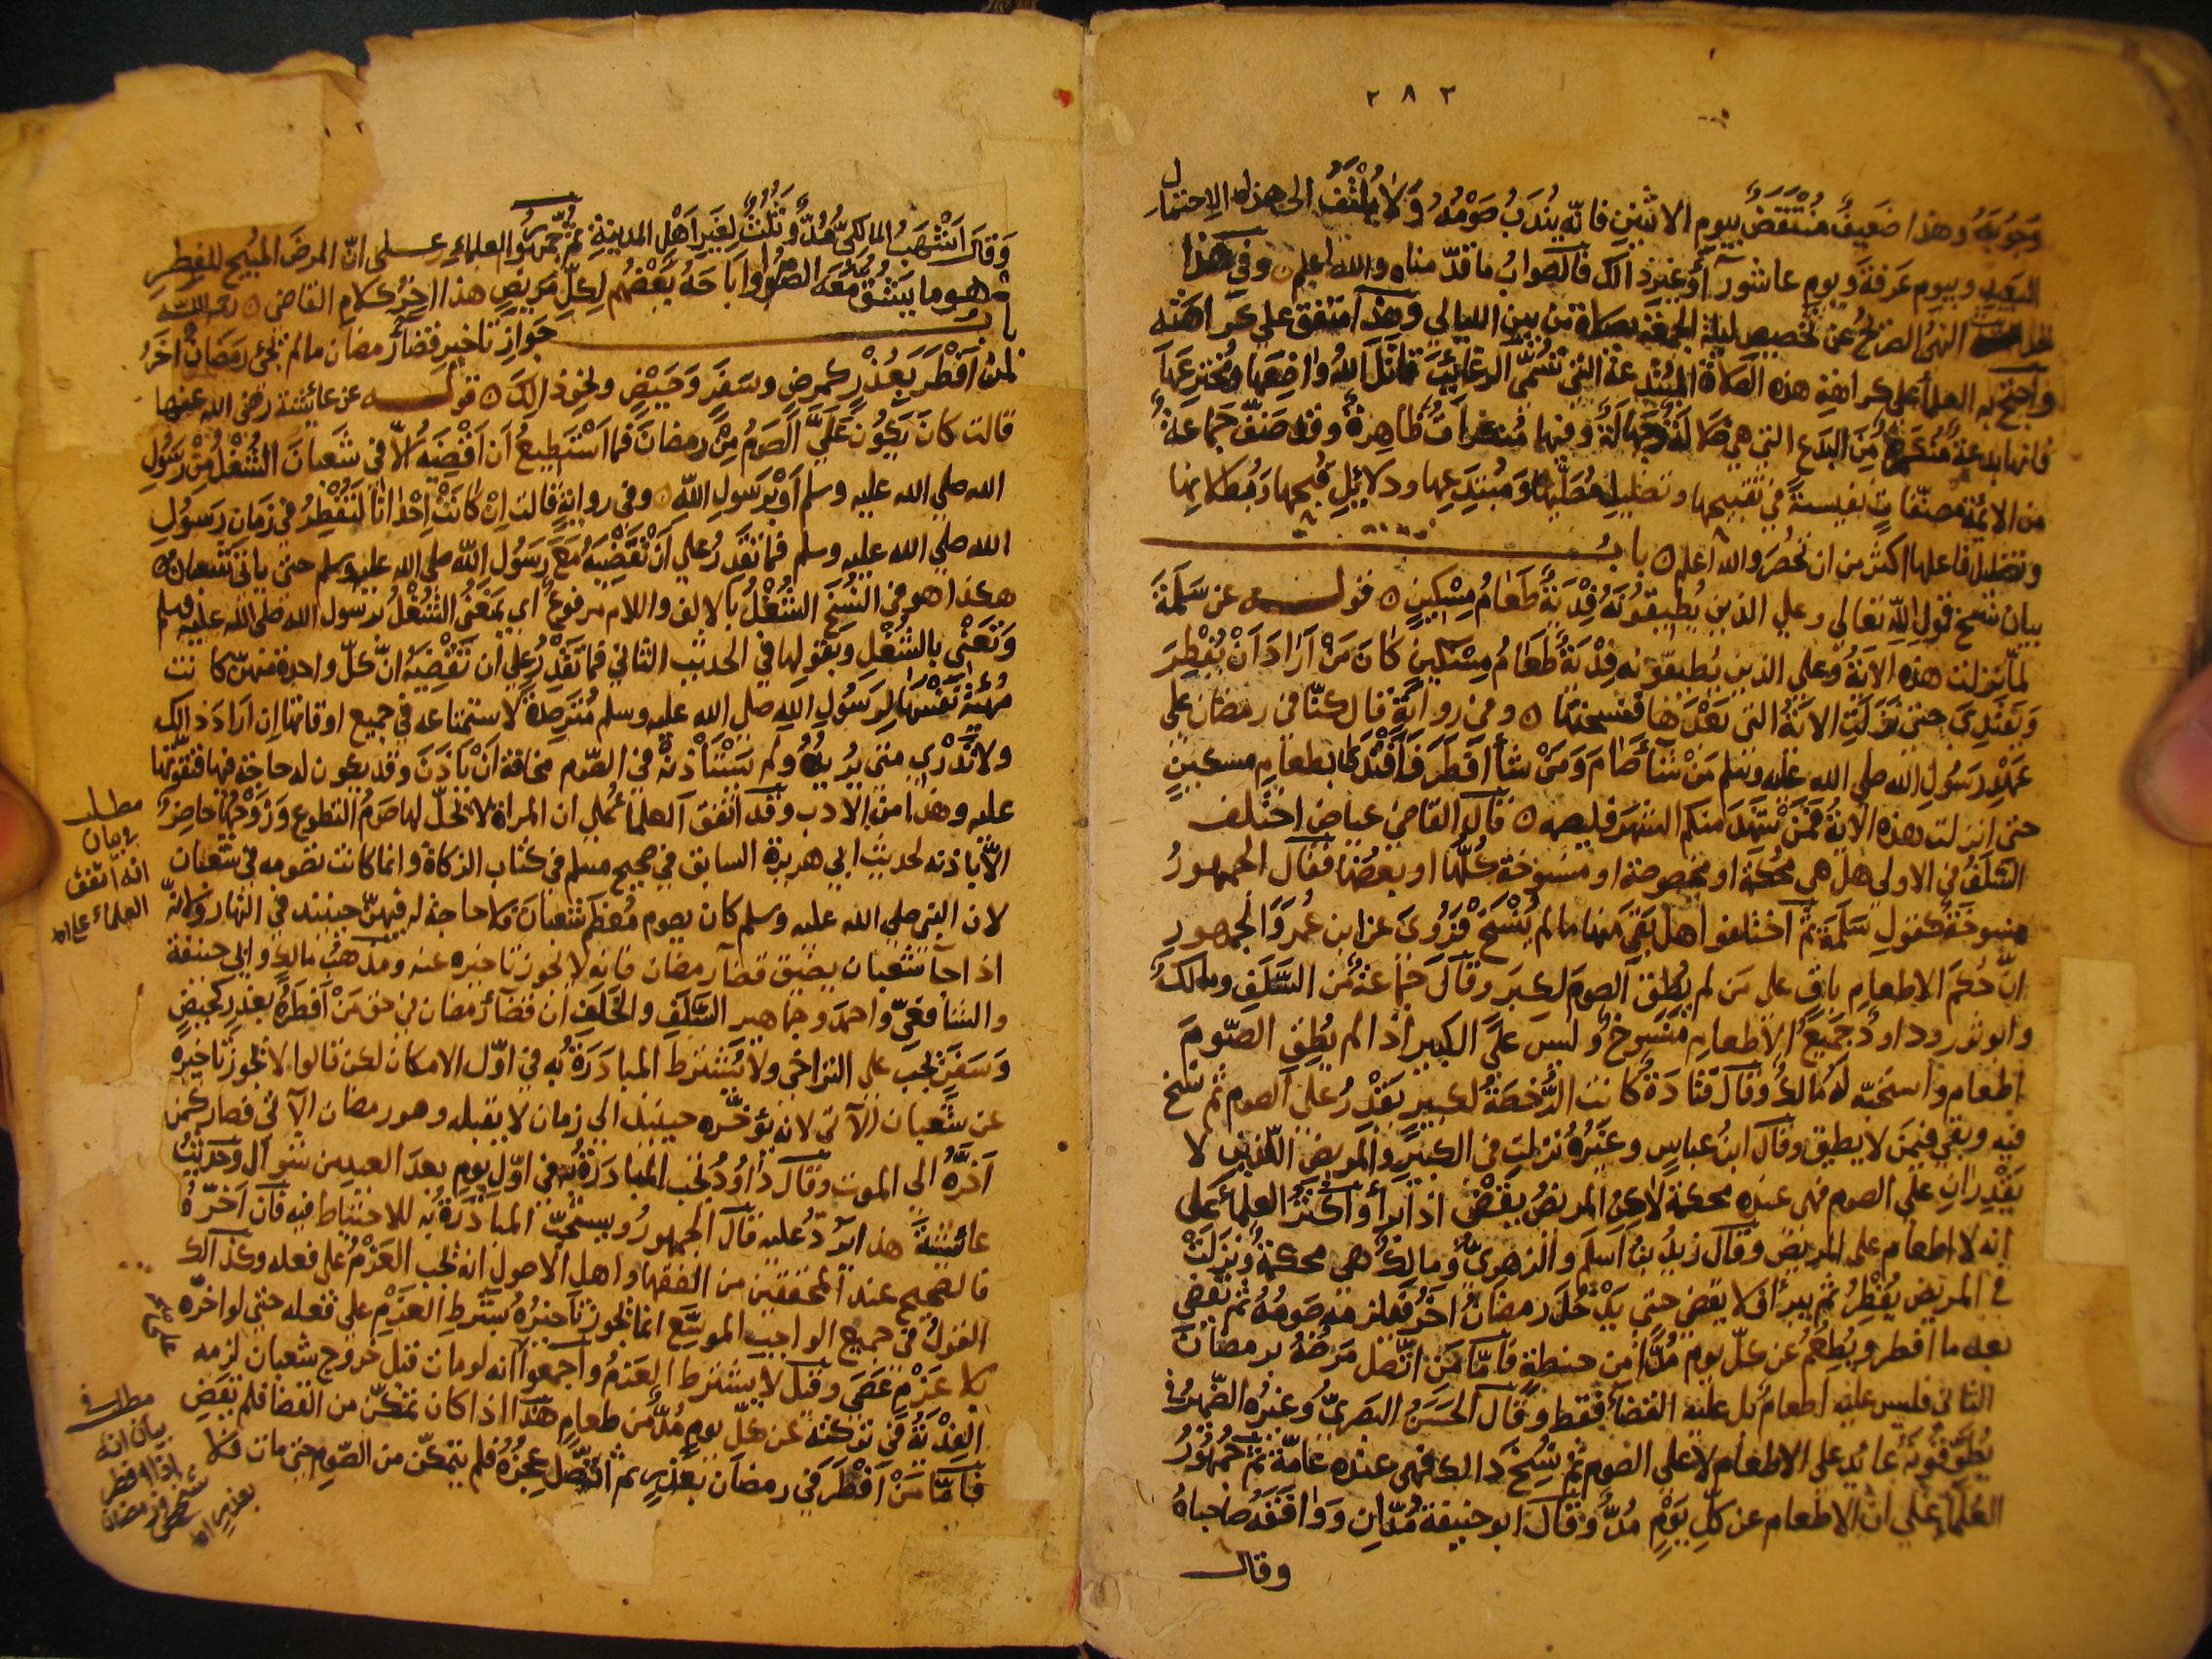 ٢٨٢
وجوبه وهذا ضعيف منتقض بيوم الاثنين فانه يندب صومه ولا يلتفت الى هذا الاحتمال
البعيد وبيوم عرفة ويوم عاشورآء وغير ذالك فالصواب ما قدمناه والله اعلم ه وفي هذا
الحديث النهي الصريح عن تخصيص ليلة الجمعة بصلاة من بين الليالي وهذا متفق علي كراهته
واحتج به العلمآء علي كراهة هذه الصلاة المبتدعة التي تسمى الرغائب قاتل الله واضعها ومخترعها
فانها بدعة منكرة من البدع التي هي ضلالة وجهالة وفيها منكرات ظاهرة وقد صنف جماعة
من الائمة مصنفات نفيسة في تقبيحها وتضليل مصليها ومبتدعها ودلائل قبحها وبطلانها
وتضليل فاعلها اكثر من ان تحصر والله اعلم ه باب
بيان نسخ قول الله تعالى وعلي الذين يطيقونه فدية طعام مسكين ه قوله عن سلمة
لما نزلت هذه الاية وعلي الذين يطيقونه فدية طعام مسكين كان من اراد ان يفطر
ويفتدى حتى نزلت الاية التي بعدها فنسختها ه وفي رواية قال كنا في رمضان علي
عهد رسول الله صلي الله عليه وسلم من شآء صام ومن شآء افطر فافتدى بطعام مسكين
حتى انزلت هذه الاية فمن شهد منكم الشهر فليصمه ه قال القاضي عياض اختلف
السلف في الاولي هل هي محكمة او مخصوصة او منسوخة كلها او بعضها فقال الجمهور
منسوخة كقول سلمة ثم اختلفوا هل بقي منها ما لم ينسخ فروى عن ابن عمر والجمهور
ان حكم الاطعام باق علي من لم يطق الصوم لكبر وقال جماعة من السلف ومالك
وابو ثور وداود جميع الاطعام منسوخ وليس على الكبير اذا لم يطق الصوم
اطعام واستحبه له مالك وقال قتادة كانت الرخصة لكبير يقدر علي الصوم ثم نسخ
فيه وبقي فيمن لا يطيق وقال ابن عباس وغيره نزلت في الكبير والمريض الذين لا
يقدران علي الصوم فهي عنده محكمة لاكن المريض يقضي اذا برأ واكثر العلمآء على
انه لا اطعام على المريض وقال زيد بن اسلم والزهري ومالك هي محكمة ونزلت
في المريض يفطر ثم يبرأ فلا يقضي حتى يدخل رمضان اخر فيلزمه صومه ثم يقضي
بعد ما افطر ويطعم عن كل يوم مدا من حنطة فاما من اتصل مرضه برمضان
الثاني فليس عليه اطعام بل عليه القضآء فقط وقال الحسن البصري وغيره الضمير في
يطيقونه عائد على الاطعام لا علي الصوم ثم نسخ ذالك فهي عنده عامة ثم جمهور
العلمآء علي ان الاطعام عن كل يوم مد وقال ابو حنيفة مدان ووافقه صاحباه
وقال
وقال اشهب المالكي مد وثلث لغير اهل المدينة ثم جمهور العلمآء على ان المرض المبيح للفطر
هو ما يشق معه الصوم واباحه بعضهم لكل مريض هذا اخر كلام القاضي ه رحمه الله
باب جواز تاخير قضآء رمضان ما لم يجئ رمضان اخر
لمن افطر بعذر كمرض وسفر وحيض ونحو ذالك ه قوله عن عائشة رضى الله عنها
قالت كان يكون علي الصوم من رمضان فما استطيع ان اقضيه الا في شعبان الشغل من رسول
الله صلي الله عليه وسلم او برسول الله ه وفي رواية قالت ان كانت احدانا لتفطر في زمان رسول
الله صلي الله عليه وسلم فما تقدر علي ان تقضيه مع رسول الله صلي الله عليه وسلم حتى ياتي شعبان ه
هكذا هو في النسخ الشغل بالالف واللام مرفوع اي يمنعني الشغل برسول الله صلي الله عليه وسلم
وتعني بالشغل وبقولها في الحديث الثاني فما تقدر علي ان تقضيه ان كل واحدة منهن كانت
مهيئة نفسها لرسول الله صلي الله عليه وسلم مترصدة لاستمتاعه في جميع اوقاتها ان اراد ذالك
ولا تدري متى يريده ولم تستأذنه في الصوم مخافة ان ياذن وقد يكون له حاجة فيها فتفوتها
عليه وهذا من الادب وقد اتفق العلمآء علي ان المراة لا يحل لها صوم التطوع وزوجها حاضر
الا باذنه لحديث ابي هريرة السابق في صحيح مسلم في كتاب الزكاة وانما كانت تصومه في شعبان
لان النبي صلي الله عليه وسلم كان يصوم معظم شعبان فلا حاجة له فيهن حينئذ في النهار ولانه
اذا جآء شعبان يضيق قضآء رمضان فانه لا يجوز تاخيره عنه ومذهب مالك وابي حنيفة
والشافعي واحمد وجماهير السلف والخلف ان قضآء رمضان في حق من افطره بعذر كحيض
وسفر يجب علي التراخي ولا يشترط المبادرة به في اول الامكان لكن قالوا لا يجوز تاخيره
عن شعبان الآتي لانه يؤخره حينئذ الي زمان لا يقبله وهو رمضان الآتي فصار كمن
اخره الى الموت وقال داود تجب المبادرة به في اول يوم بعد العيد من شوال وحديث
عائشة هذا يرد عليه قال الجمهور ويستحب المبادرة به للاحتياط فيه فان اخره
فالصحيح عند المحققين من الفقهآء واهل الاصول انه يجب العزم علي فعله وكذالك
القول في جميع الواجب الموسع انما يجوز تاخيره بشرط العزم على فعله حتى لو اخره
بلا عزم عصى وقيل لا يشترط العزم واجمعوا انه لو مات قبل خروج شعبان لزمه
الفدية في تركته عن كل يوم مد من طعام هذا اذا كان تمكن من القضا فلم يقض
فاما من افطر في رمضان بعذر ثم اتصل عجزه فلم يتمكن من الصوم حتى مات فلا
مطلب
في بيان
انه اتفق
العلمآء علي ان
مطلب في
بيان انه
اذا افطر
شخص في رمضان
بعذر